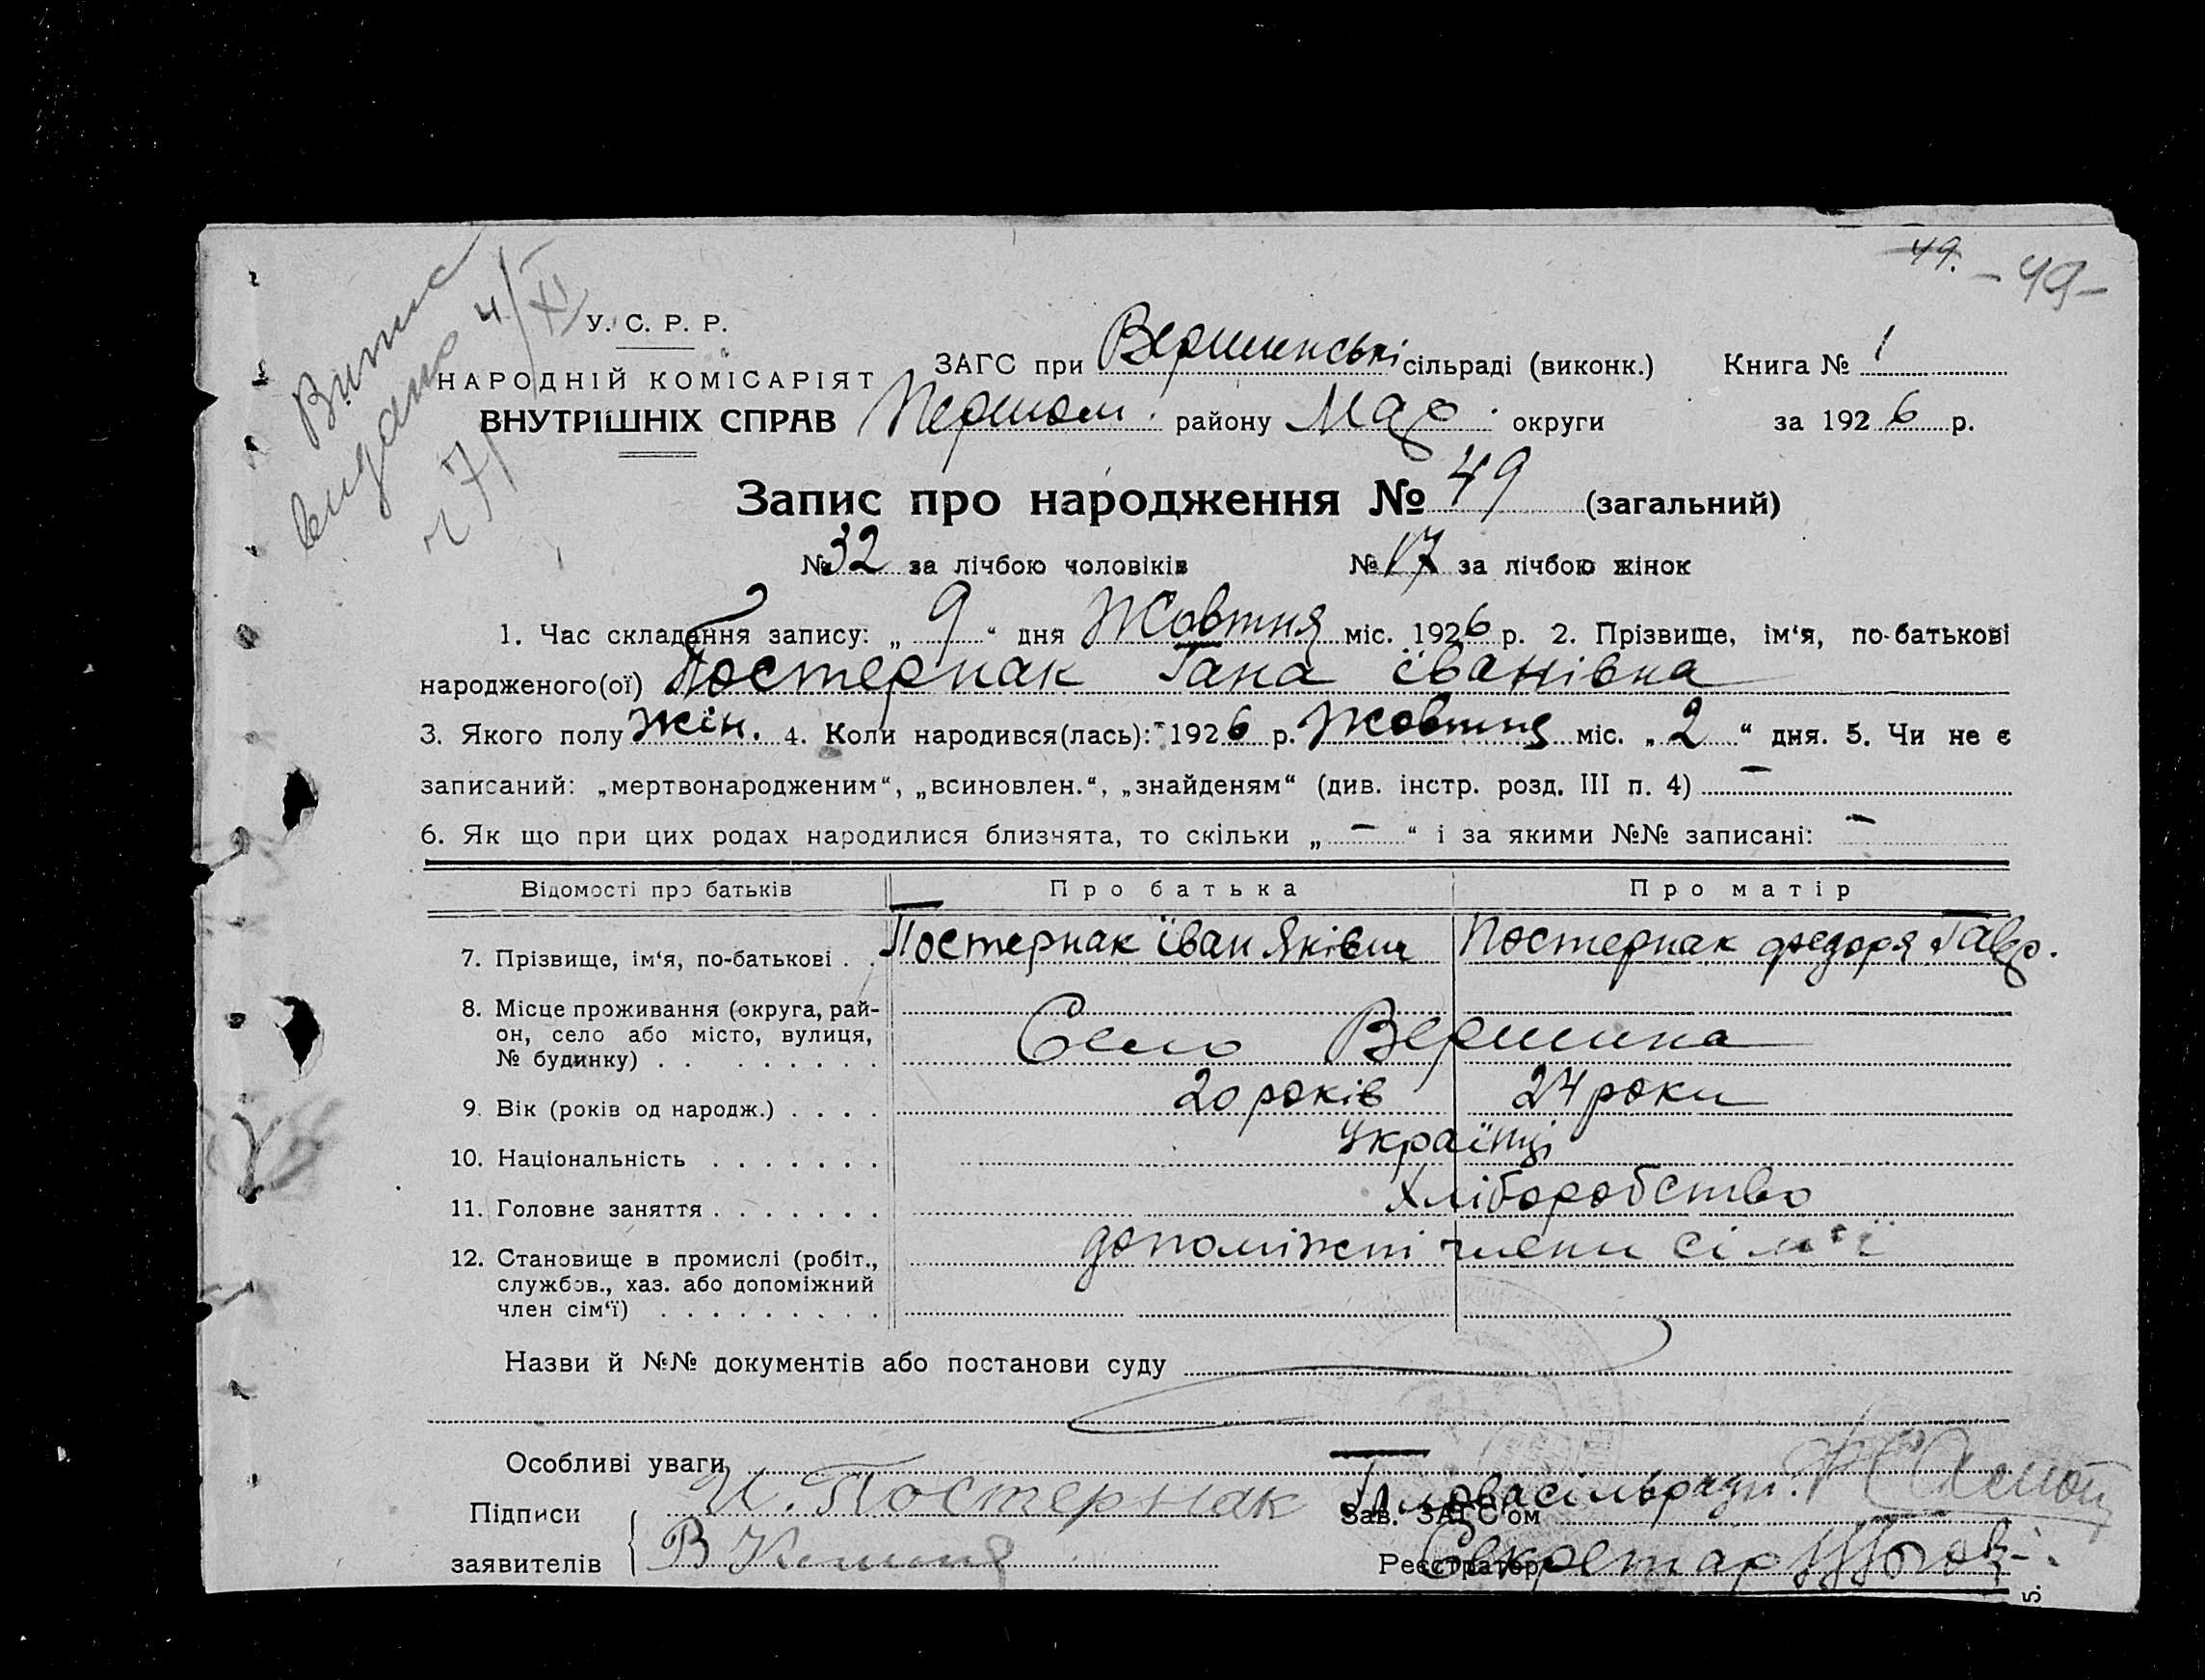 49. – 49 –
Випис
видано 4/XI
27
У. С. Р. Р.
НАРОДНІЙ КОМІСАРІЯТ
ВНУТРІШНІХ СПРАВ
ЗАГС при Вершинські сільраді (виконк.) Книга № 1
Першом. району Мар. округи за 1926 р.
Запис про народження № 49 (загальний)
№ 32 за лічбою чоловіків № 17 за лічбою жінок
1. Час складення запису: „ 9 “ дня Жовтня міс. 1926 р. 2. Прізвище, ім‘я, по-батькові
народженого(ої) Постернак Гана Іванівна
3. Якого полу жін. 4. Коли народився(лась): 1926 р. Жовтня міс. „ 2 “ дня. 5. Чи не є
записаний: „мертвонародженим“, „всиновлен.“, „знайденям“ (див. інстр. розд. III п. 4) –
6. Як що при цих родах народилися близнята, то скільки „ – “ і за якими №№ записані: –
Відомості про батьків Про батька Про матір
7. Прізвище, ім‘я, по-батькові . . Постернак Іван Яківич Постернак Федоря Гавр.
8. Місце проживання (округа, рай-
он, село або місто, вулиця, Село Вершина
№ будинку) . . . . . . . .
9. Вік (років од народж.) . . . . 20 років 24 роки
10. Національність . . . . . . . Українці
11. Головне заняття . . . . . . . Хліборобство
12. Становище в промислі (робіт., допоміжні члени сім'ї
службов., хаз. або допоміжний
член сім‘ї) . . . . . . . . .
Назви й №№ документів або постанови суду
Особливі уваги
Підписи И. Постернак Голова сільради.
Зав. ЗАГС‘ом
заявителів В
Реєстратор Секретар
5.